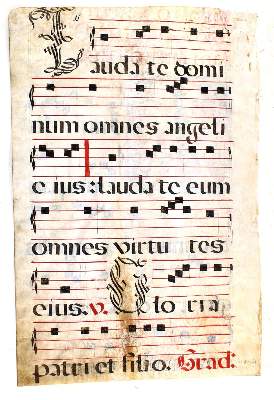 Lauda te domi
num omnes angeli
eius: lauda te eum
omnes virtu tes
eius. v. Glo ria
patri et filio. Grad: